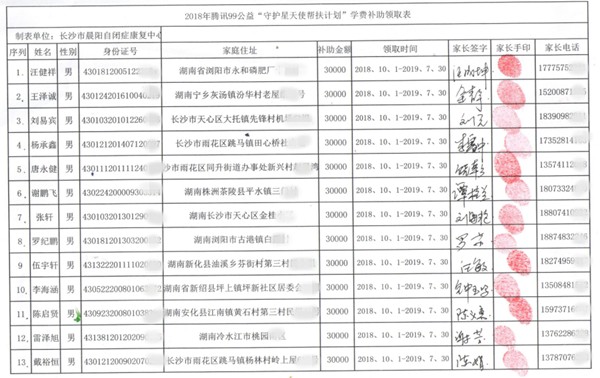 2018年腾讯99公益“守护星天使帮扶计划”学费补助领取表
制表单位：长沙市晨阳自闭症康复中心
序列 姓名 性别 身份证号 家庭住址 补助金额 领取时间 家长签字 家长手印 家长电话
1. 汪健祥 男 4301812005122 湖南省浏阳市永和磷肥厂 30000 2018、10、1-2019、7、30 177757
2. 王泽诚 男 43012420161004 湖南宁乡灰汤镇汾华村老屋 号 30000 2018、10、1-2019、7、30 1520087
3. 刘易宾 男 4301032010122 长沙市天心区大托镇先锋村机 30000 2018、10、1-2019、7、30 1839098
4. 杨承鑫 男 430121201407120 长沙市雨花区跳马镇田心桥社 30000 2018、10、1-2019、7、30 17352814
5. 唐永健 男 430111201111124 长沙市雨花区同升街道办事处新兴村 湾 30000 2018、10、1-2019、7、30 13574112
6. 谢鹏飞 男 4302242000930 湖南株洲茶陵县平水镇三 30000 2018、10、1-2019、7、30 18073324
7. 张轩 男 430103201301290 湖南长沙市天心区金桂 30000 2018、10、1-2019、7、30 18807410
8. 罗纪鹏 男 430181201303200 湖南浏阳市古港镇白 30000 2018、10、1-2019、7、30 罗 18874832
9 伍宇轩 男 431322201111020 湖南新化县油溪乡芬街村第三村 30000 2018、10、1-2019、7、30 敏 18274959
10. 李海涵 男 430522200801063 湖南省新绍县坪上镇坪新社区居委会 30000 2018、10、1-2019、7、30 13508481
11. 陈启贤 男 430923200801038 湖南安化县江南镇黄石村第三村民 30000 2018、10、1-2019、7、30 陈 15973716
12 雷泽旭 男 431381201202090 湖南冷水江市桃园 30000 2018、10、1-2019、7、30 谢芳 13762286
13. 戴裕恒 男 430121200902070 长沙市雨花区跳马镇杨林村岭上屋 号 30000 2018、10、1-2019、7、30 陈娟 13787076